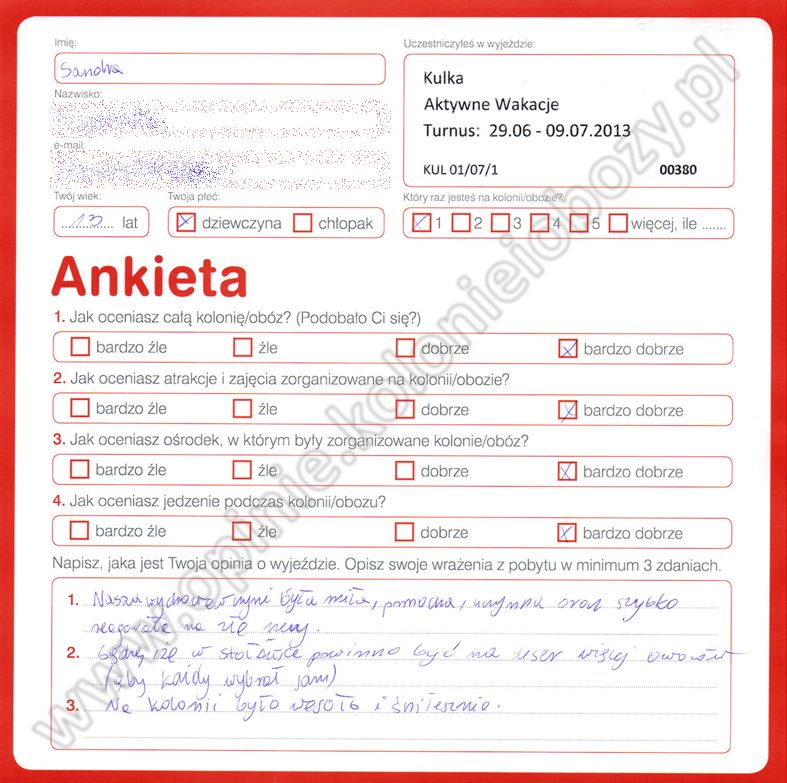 Imię:
Sandra
Uczestniczyłeś w wyjeździe:
Kulka
Aktywne Wakacje
Turnus: 29.06 - 09.07.2013
KUL 01/07/1 00380
Nazwisko:
e-mail:
Twój wiek:
13 lat
Twoja płeć:
dziewczyna chłopak
Który raz jesteś na kolonii/obozie?
1 2 3 4 5 więcej, ile .......
Ankieta
1. Jak oceniasz całą kolonię/obóz? (Podobało Ci się?)
bardzo źle źle dobrze bardzo dobrze
2. Jak oceniasz atrakcje i zajęcia zorganizowane na kolonii/obozie?
bardzo źle źle dobrze bardzo dobrze
3. Jak oceniasz ośrodek, w którym były zorganizowane kolonie/obóz?
bardzo źle źle dobrze bardzo dobrze
4. Jak oceniasz jedzenie podczas kolonii/obozu?
bardzo źle źle dobrze bardzo dobrze
Napisz, jaka jest Twoja opinia o wyjeździe. Opisz swoje wrażenia z pobytu w minimum 3 zdaniach.
1. Nasza wychowawczyni była miła, pomocna, oraz szybko
reagowała na złe
2. że w stołówce powinno być na deser więcej owoców
(aby każdy wybrał sam)
3. Na kolonii było wesoło i śmiesznie.
www.opinie.kolonieiobozy.pl